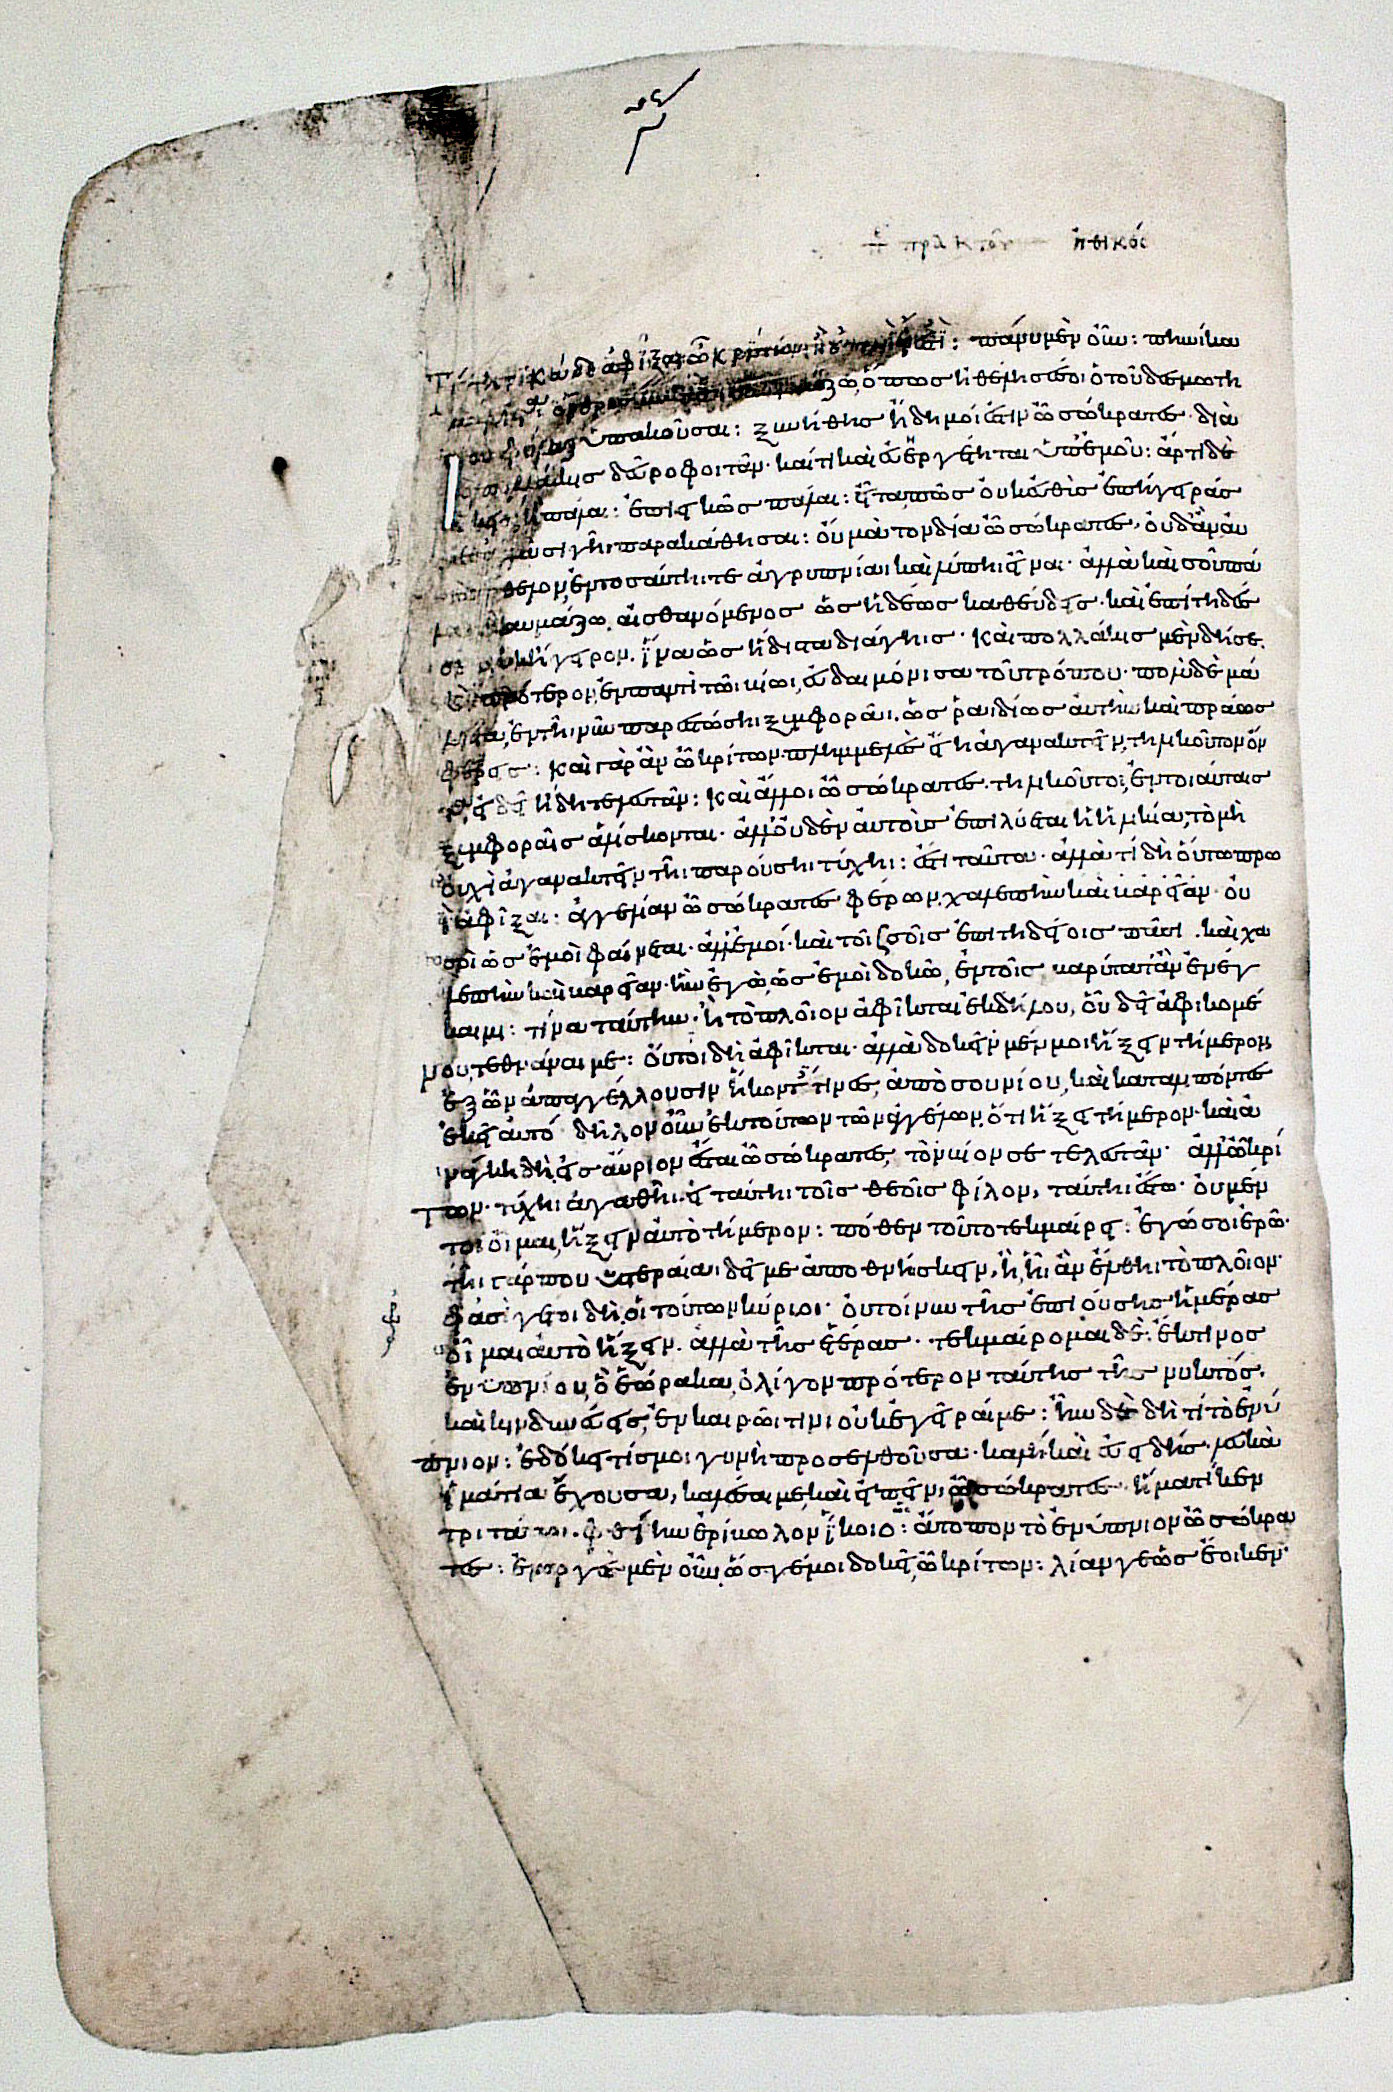 ἢ πρακτέον ἠθικός
Τί τηνικάδε ἀφῖξαι ὦ κρίτων; ἢ οὐ πρὼ ἔτι ἐστί: πάνυ μὲν οὖν: πηνίκα
ὄρθρος θαυμάζω, ὅπως ἠθέλησέ σοι ὁ τοῦ δεσμωτη
φύλαξ ὑπακοῦσαι: ξυνήθης ἤδη μοί ἐστιν ὦ σώκρατες· διὰ
πολλάκις δεῦρο φοιτᾶν· καί τι καὶ εὐεργέτηται ὑπ' ἐμοῦ: ἄρτι δὲ
πάλαι: ἐπιεικῶς πάλαι: εἶτα πῶς οὐκ εὐθὺς ἐπήγειράς
ἀλλὰ σιγῆι παρακάθησαι: οὐ μὰ τὸν δία ὦ σώκρατες, οὐδ' ἂν αὐ
ἤθελον ἐν τοσαύτηι τε ἀγρυπνίαι καὶ λύπηι εἶναι· ἀλλὰ καὶ σοῦ πά
θαυμάζω, αἰσθανόμενος ὡς ἡδέως καθεύδεις· καὶ ἐπίτηδές
σε οὐκ ἤγειρον, ἵνα ὡς ἥδιστα διάγηις· καὶ πολλάκις μὲν δή σε
καὶ πρότερον ἐν παντὶ τῶι βίωι, εὐδαιμόνισα τοῦ τρόπου· πολὺ δὲ μά
λιστα, ἐν τῆι νῦν παρεστώσηι ξυμφορᾶι, ὡς ῥαιδίως αὐτὴν καὶ πράως
φέρεις: καὶ γὰρ ἂν ὦ κρίτων πλημμελὲς εἴη ἀγανακτεῖν, τηλικοῦτον ὄν
τα, εἰ δεῖ ἤδη τελευτᾶν: καὶ ἄλλοι ὦ σώκρατες τηλικοῦτοι, ἐν τοιαύταις
ξυμφοραῖς ἁλίσκονται· ἀλλ' οὐδὲν αὐτοὺς ἐπιλύεται ἡ ἡλικία, τὸ μὴ
οὐχὶ ἀγανακτεῖν τῆι παρούσηι τύχηι: ἔστι ταῦτα· ἀλλὰ τί δὴ οὕτω πρω
ῒ ἀφῖξαι: ἀγγελίαν ὦ σώκρατες φέρων χαλεπὴν καὶ βαρεῖαν· οὐ
σοὶ ὡς ἐμοὶ φαίνεται· ἀλλ' ἐμοί· καὶ τοῖς σοῖς ἐπιτηδείοις πᾶσι· καὶ χα
λεπὴν καὶ βαρεῖαν· ἣν ἐγὼ, ὡς ἐμοὶ δοκῶ, ἐν τοῖς βαρύτατ' ἂν ἐνέγ
καιμι: τίνα ταύτην· ἢ τὸ πλοῖον ἀφῖκται ἐκ δήλου, οὗ δεῖ ἀφικομέ
νου, τεθνάναι με: οὔτοι δὴ ἀφῖκται· ἀλλὰ δοκεῖν μέν μοι ἥξειν τήμερον,
ἐξ ὧν ἀπαγγέλλουσιν ἥκοντές τινες, ἀπὸ σουνίου, καὶ καταλιπόντες
ἐκεῖ αὐτό· δῆλον οὖν ἐκ τούτων τῶν ἀγγέλων, ὅτι ἥξει τήμερον· καὶ ἀ
νάγκη δὴ, εἰς αὔριον ἔσται ὦ σώκρατες, τὸν βίον σε τελευτᾶν· ἀλλ' ὦ κρί
των· τύχηι ἀγαθῆι· εἰ ταύτηι τοῖς θεοῖς φίλον, ταύτηι ἔστω· οὐ μέν
τοι οἶμαι, ἥξειν αὐτὸ τήμερον: πόθεν τοῦτο τεκμαίρει: ἐγώ σοι ἐρῶ·
τῆι γάρ που ὑστεραίαι δεῖ με ἀποθνήσκειν, ἢ ἧι ἂν ἔλθηι τὸ πλοῖον·
φασί γέ τοι δὴ, οἱ τούτων κύριοι· οὐ τοίνυν τῆς ἐπιούσης ἡμέρας
οἶμαι αὐτὸ ἥξειν, ἀλλὰ τῆς ἑτέρας· τεκμαίρομαι δὲ, ἔκ τινος
ἐνυπνίου, ὃ ἑώρακα, ὀλίγον πρότερον ταύτης τῆς νυκτός,
καὶ κινδυνεύεις, ἐν καιρῶι τινι οὐκ ἐγεῖραί με: ἦν δὲ δὴ τί τὸ ἐνύ
πνιον: ἐδόκει τίς μοι γυνὴ προσελθοῦσα· καλὴ καὶ εὐειδής· λευκὰ
ἱμάτια ἔχουσα, καλέσαι με, καὶ εἰπεῖν, ὦ σώκρατες· ἤματί κεν
τριτάτωι φθίην ἐρίβωλον ἵκοιο: ἄτοπον τὸ ἐνύπνιον ὦ σώκρα
τες: ἐναργὲς μὲν οὖν, ὥς γέ μοι δοκεῖ, ὦ κρίτων: λίαν γε ὡς ἔοικεν·